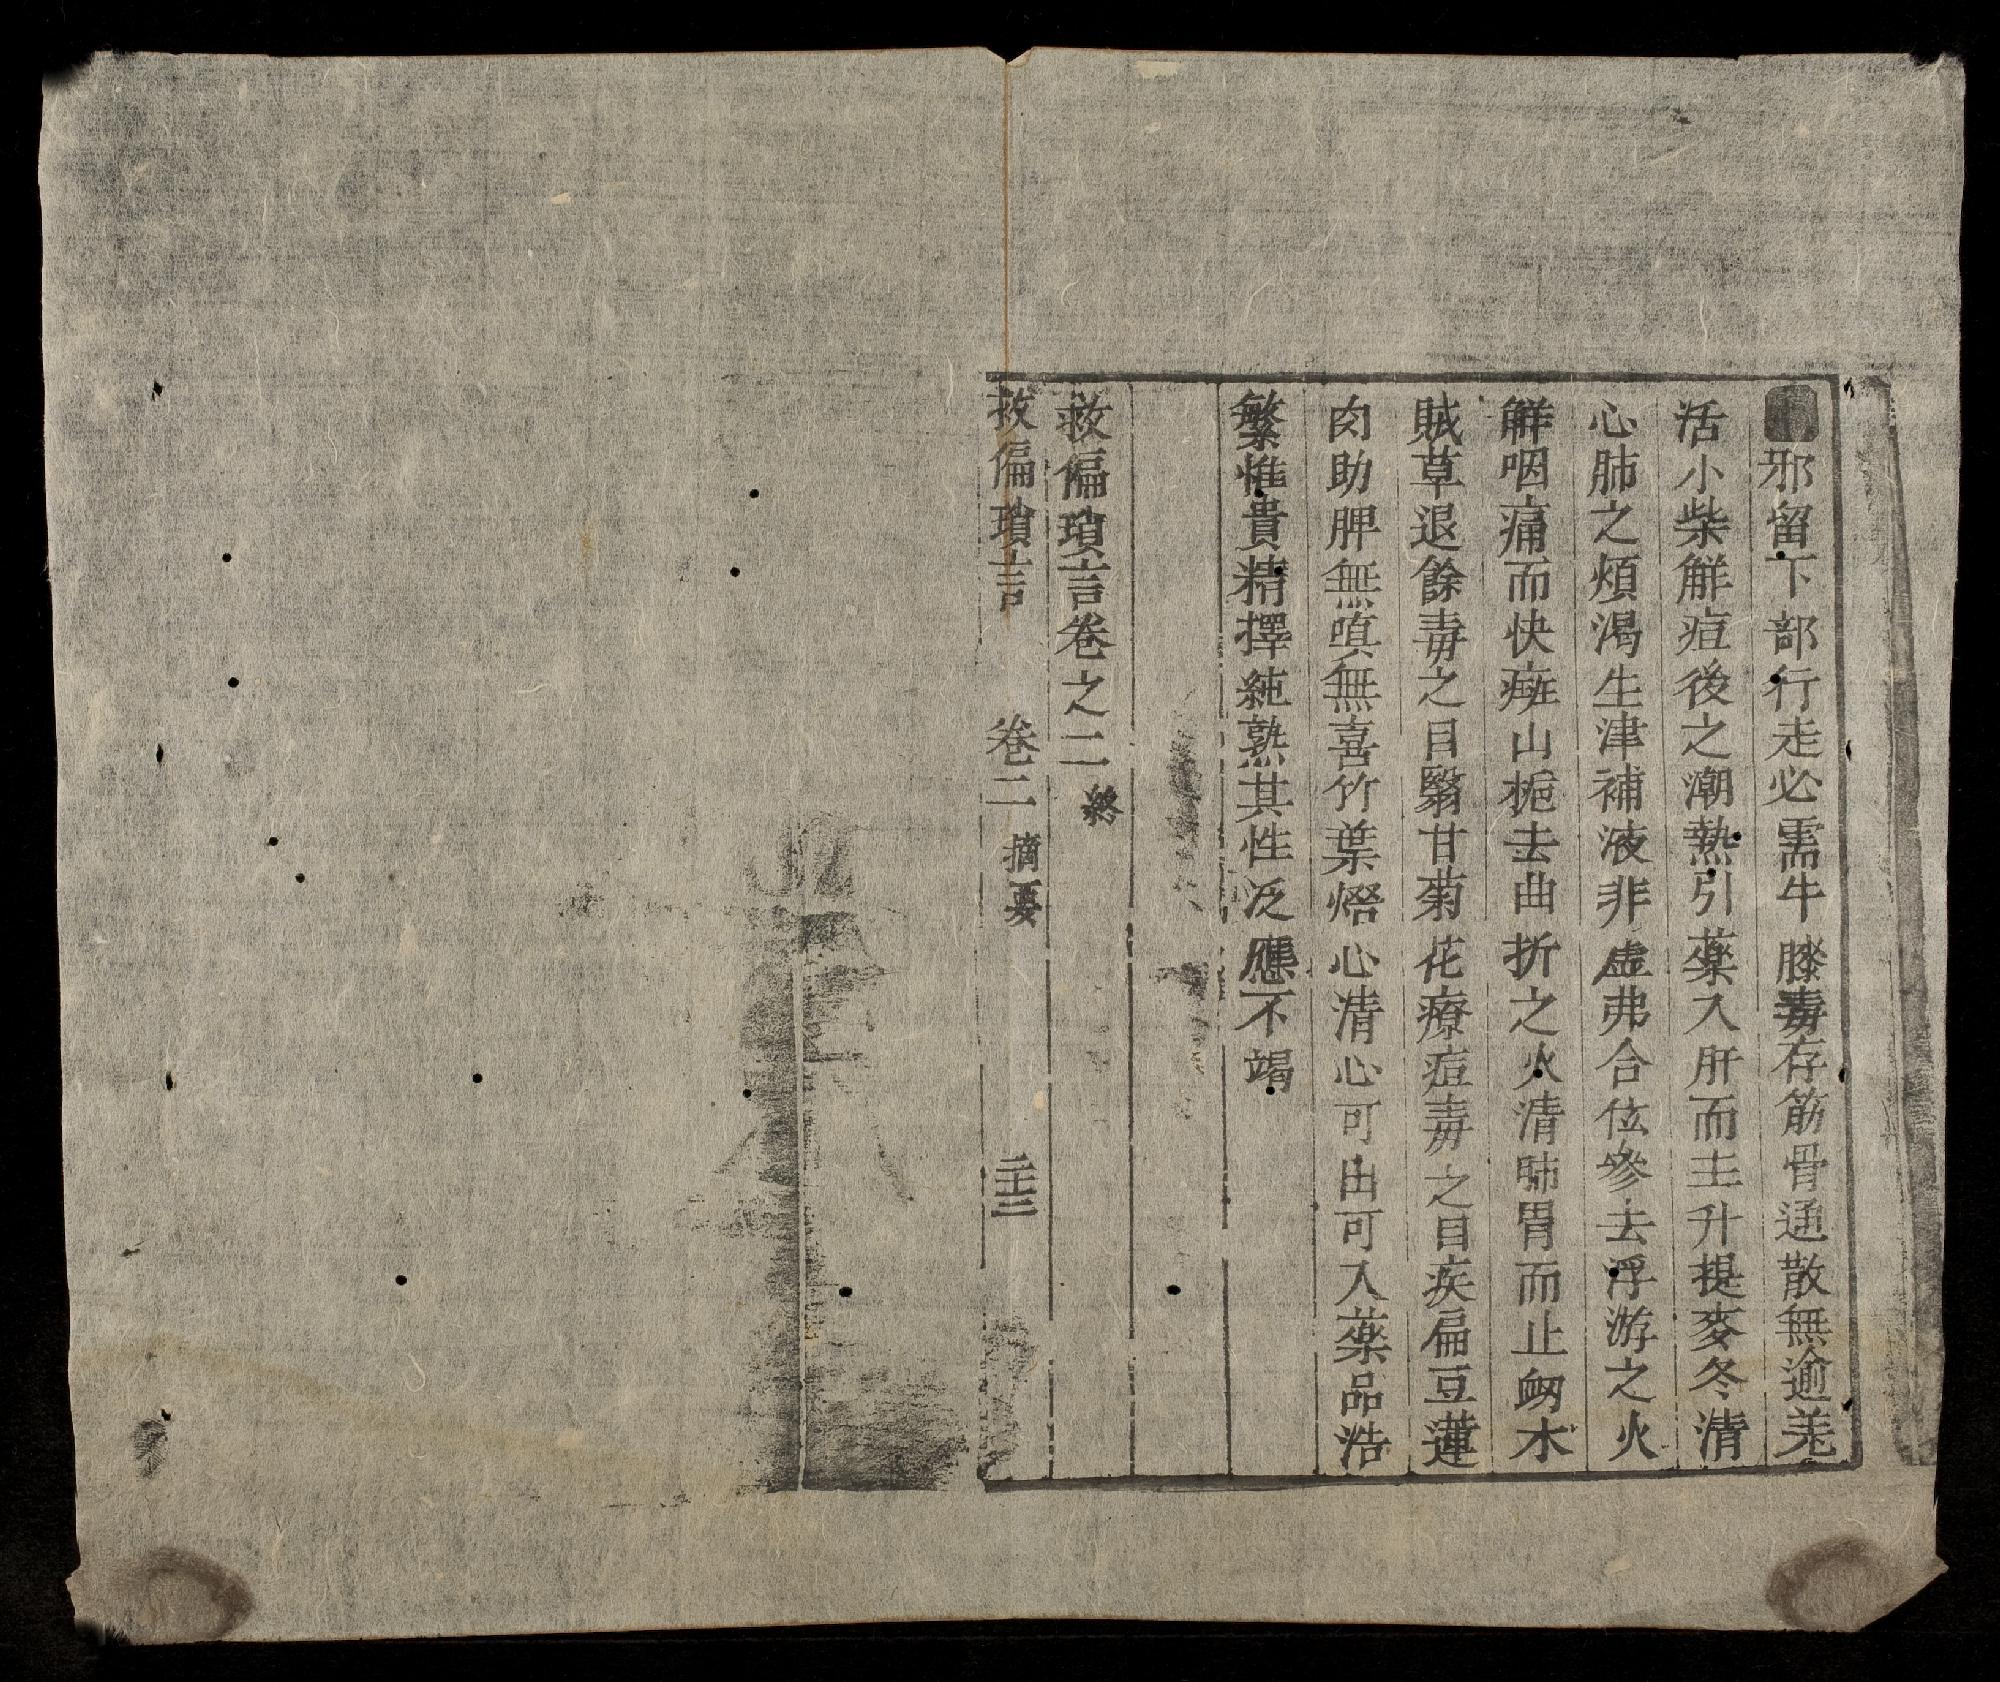 邪留下部行走必需牛膝毒存筋骨通散無逾羗
活小柴觧痘後之潮熱引藥入肝而主升提麥冬清
心肺之煩渴生津補液非虛弗合位參去浮游之火
觧咽痛而快癍山梔去曲折之火清肺胃而止衂木
賊草退餘毒之目翳甘菊花療痘毒之目疾扁豆蓮
肉助脾無嗔無喜竹葉燈心清心可出可入藥品浩
繁惟貴精擇純熟其性泛應不竭
救偏瑣言卷之二終
救偏瑣言 卷二 摘要 三十三